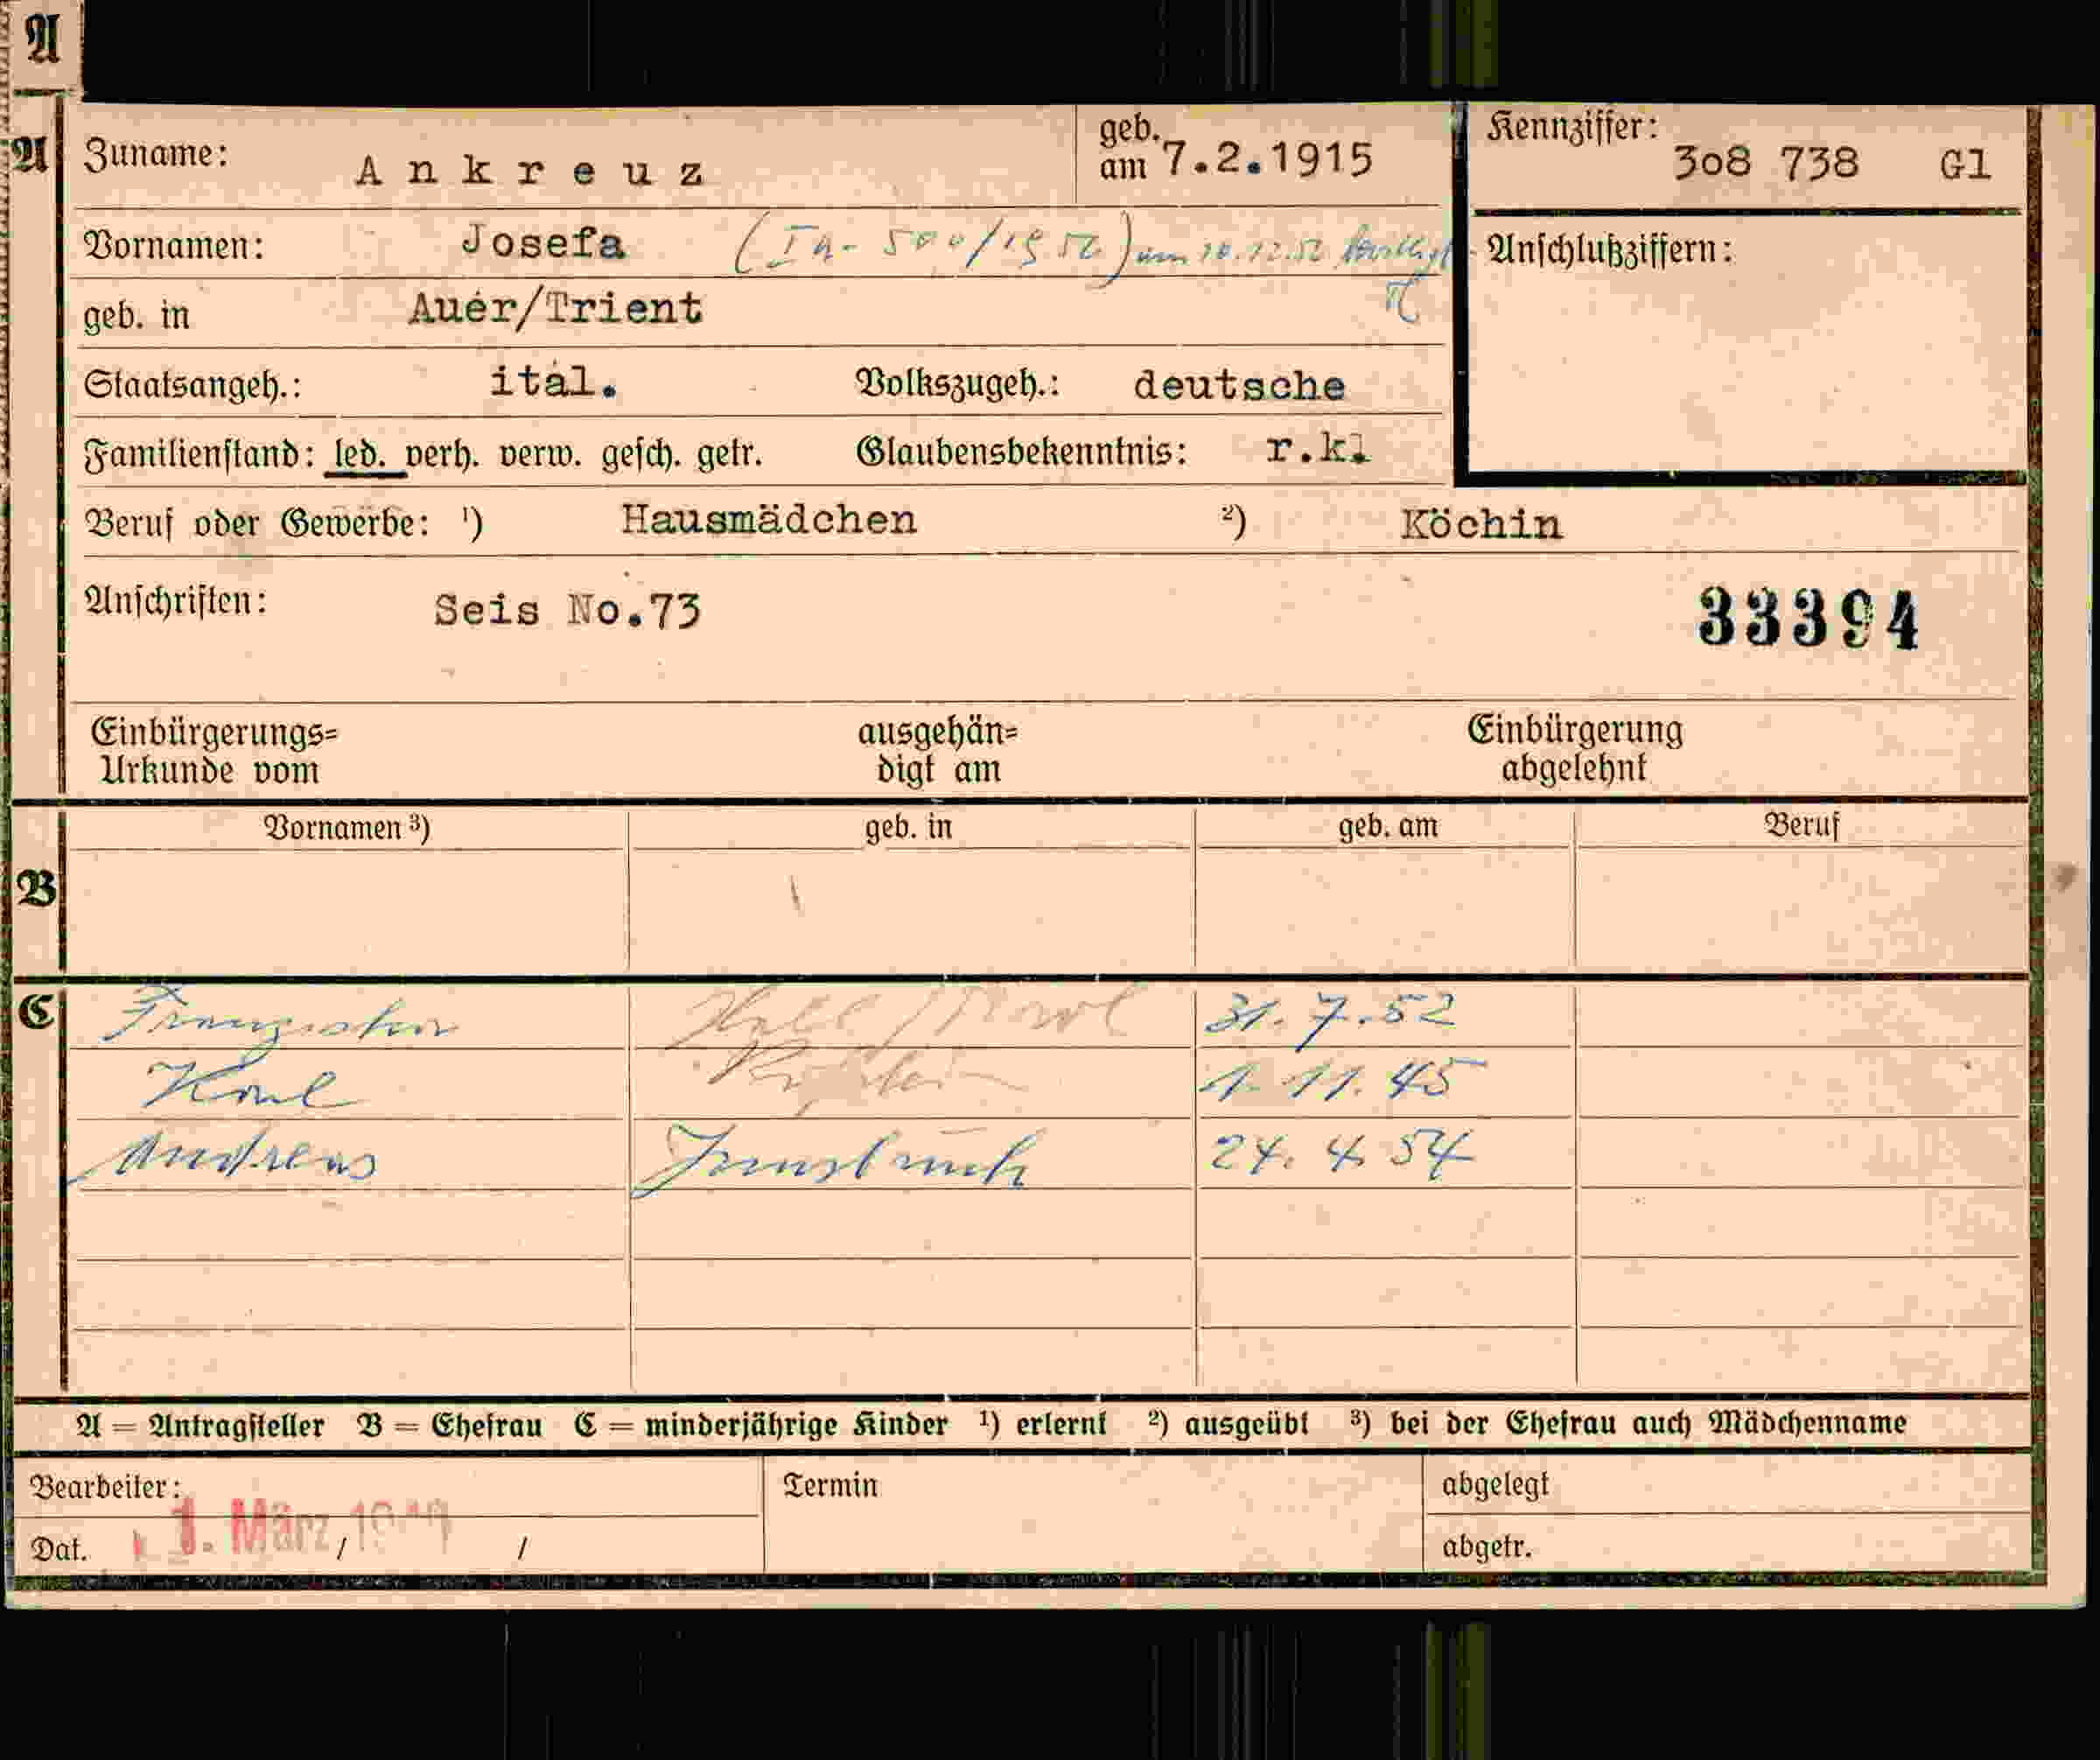 A
A Zuname: Ankreuz geb. am 7.2.1915 Kennziffer: 3o8 738 Gl
Vornamen: Josefa (In- 500/1952) am 10.12.52 Anschlußziffern:
geb. in Auer/Trient
Staatsangeh.: ital. Volkszugeh.: deutsche
Familienstand: led. verh. verw. gesch. getr. Glaubensbekenntnis: r.k.
Beruf oder Gewerbe: ¹) Hausmädchen ²) Köchin
Anschriften: Seis No.73 33394
Einbürgerungs= ausgehän= Einbürgerung
Urkunde vom digt am abgelehnt
Vornamen ³) geb. in geb. am Beruf
B
C Franziska Hall/Tirol 31.7.52
Karl 1 11. 45
Andreas Innsbruck 24. 4 54
A = Antragsteller B = Ehefrau C = minderjährige Kinder ¹) erlernt ²) ausgeübt ³) bei der Ehefrau auch Mädchenname
Bearbeiter: Termin abgelegt
Dat. 1. März / / abgetr.